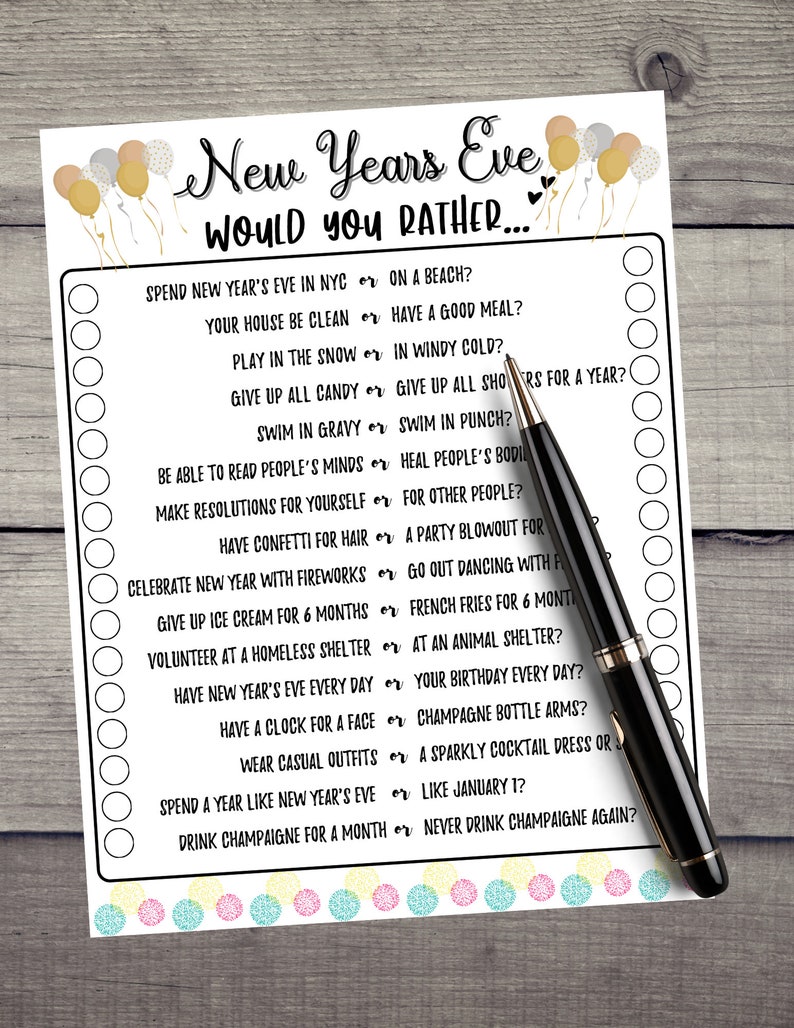 New Year's Eve
WOULD YOU RATHER...
SPEND NEW YEAR'S EVE IN NYC or ON A BEACH?
YOUR HOUSE BE CLEAN or HAVE A GOOD MEAL?
PLAY IN THE SNOW or IN WINDY COLD?
GIVE UP ALL CANDY or GIVE UP ALL SHOWERS FOR A YEAR?
SWIM IN GRAVY or SWIM IN PUNCH?
BE ABLE TO READ PEOPLE'S MINDS or HEAL PEOPLE'S
MAKE RESOLUTIONS FOR YOURSELF or FOR OTHER PEOPLE?
HAVE CONFETTI FOR HAIR or A PARTY BLOWOUT FOR
CELEBRATE NEW YEAR WITH FIREWORKS or GO OUT DANCING WITH
GIVE UP ICE CREAM FOR 6 MONTHS or FRENCH FRIES FOR 6
VOLUNTEER AT A HOMELESS SHELTER or AT AN ANIMAL SHELTER?
HAVE NEW YEAR'S EVE EVERY DAY or YOUR BIRTHDAY EVERY DAY?
HAVE A CLOCK FOR A FACE or CHAMPAGNE BOTTLE ARMS?
WEAR CASUAL OUTFITS or A SPARKLY COCKTAIL DRESS OR
SPEND A YEAR LIKE NEW YEAR'S EVE or LIKE JANUARY 1?
DRINK CHAMPAIGNE FOR A MONTH or NEVER DRINK CHAMPAIGNE AGAIN?